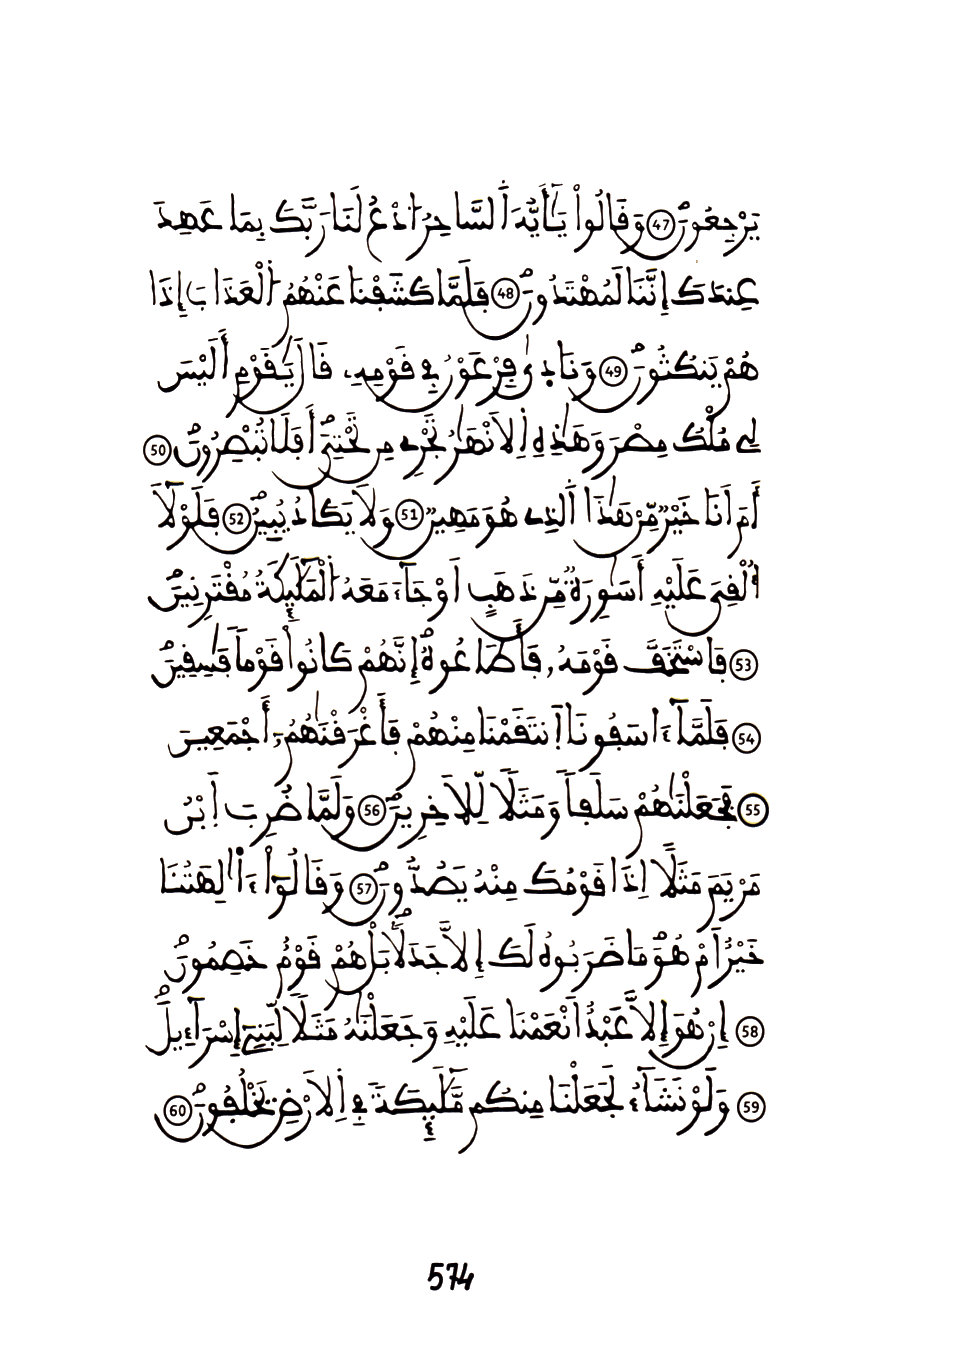 يَرْجِعُونَ ۝47 وَقَالُواْ يَٰٓأَيُّهَ اَ۬لسَّاحِرُ اُ۟دْعُ لَنَا رَبَّكَ بِمَا عَهِدَ
عِندَكَ إِنَّنَا لَمُهْتَدُونَ ۝48 فَلَمَّا كَشَفْنَا عَنْهُمُ اُ۬لْعَذَابَ إِذَا
هُمْ يَنكُثُونَ ۝49 وَنَادَىٰ فِرْعَوْنُ فِے قَوْمِهِۦ قَالَ يَٰقَوْمِ أَلَيْسَ
لِے مُلْكُ مِصْرَ وَهَٰذِهِ اِ۬لَانْهَٰرُ تَجْرِے مِن تَحْتِيَ أَفَلَا تُبْصِرُونَ ۝50
أَمَ اَنَا خَيْرٞ مِّنْ هَٰذَا اَ۬لذِے هُوَ مَهِينٞ ۝51 وَلَا يَكَادُ يُبِينُ ۝52 فَلَوْلَآ
أُلْقِيَ عَلَيْهِ أَسَٰوِرَةٞ مِّن ذَهَبٍ اَوْ جَآءَ مَعَهُ اُ۬لْمَلَٰٓئِكَةُ مُقْتَرِنِينَ
۝53 فَاسْتَخَفَّ قَوْمَهُۥ فَأَطَاعُوهُ إِنَّهُمْ كَانُواْ قَوْماٗ فَٰسِقِينَ
۝54 فَلَمَّآ ءَاسَفُونَا اَ۪نتَقَمْنَا مِنْهُمْ فَأَغْرَقْنَٰهُمُۥٓ أَجْمَعِينَ
۝55 فَجَعَلْنَٰهُمْ سَلَفاٗ وَمَثَلاٗ لِّلَاخِرِينَ ۝56 وَلَمَّا ضُرِبَ اَ۪بْنُ
مَرْيَمَ مَثَلاً اِذَا قَوْمُكَ مِنْهُ يَصُدُّونَ ۝57 وَقَالُوٓاْ ءَا۬لِهَتُنَا
خَيْرٌ اَمْ هُوَ مَا ضَرَبُوهُ لَكَ إِلَّا جَدَلَاۢ بَلْ هُمْ قَوْمٌ خَصِمُونَ
۝58 إِنْ هُوَ إِلَّا عَبْدٌ اَنْعَمْنَا عَلَيْهِ وَجَعَلْنَٰهُ مَثَلاٗ لِّبَنِےٓ إِسْرَآءِيلَ
۝59 وَلَوْ نَشَآءُ لَجَعَلْنَا مِنكُم مَّلَٰٓئِكَةٗ فِے اِ۬لَارْضِ يَخْلُفُونَ ۝60
574